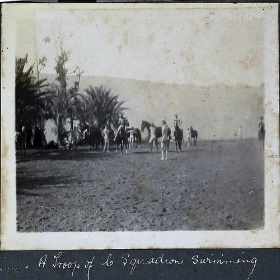 A Troop of C Squadron Swimming